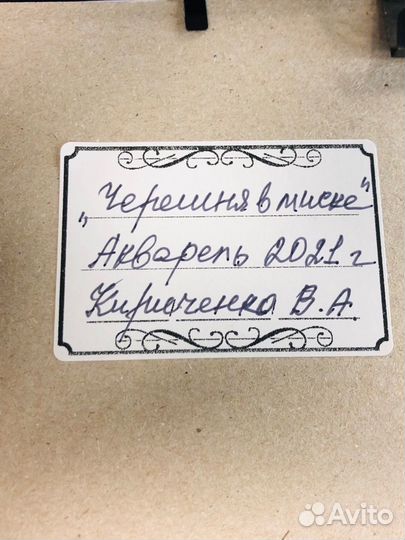 „Черешня в миске"
Акварель 2021 г
Кириаченко В.А.
Avito